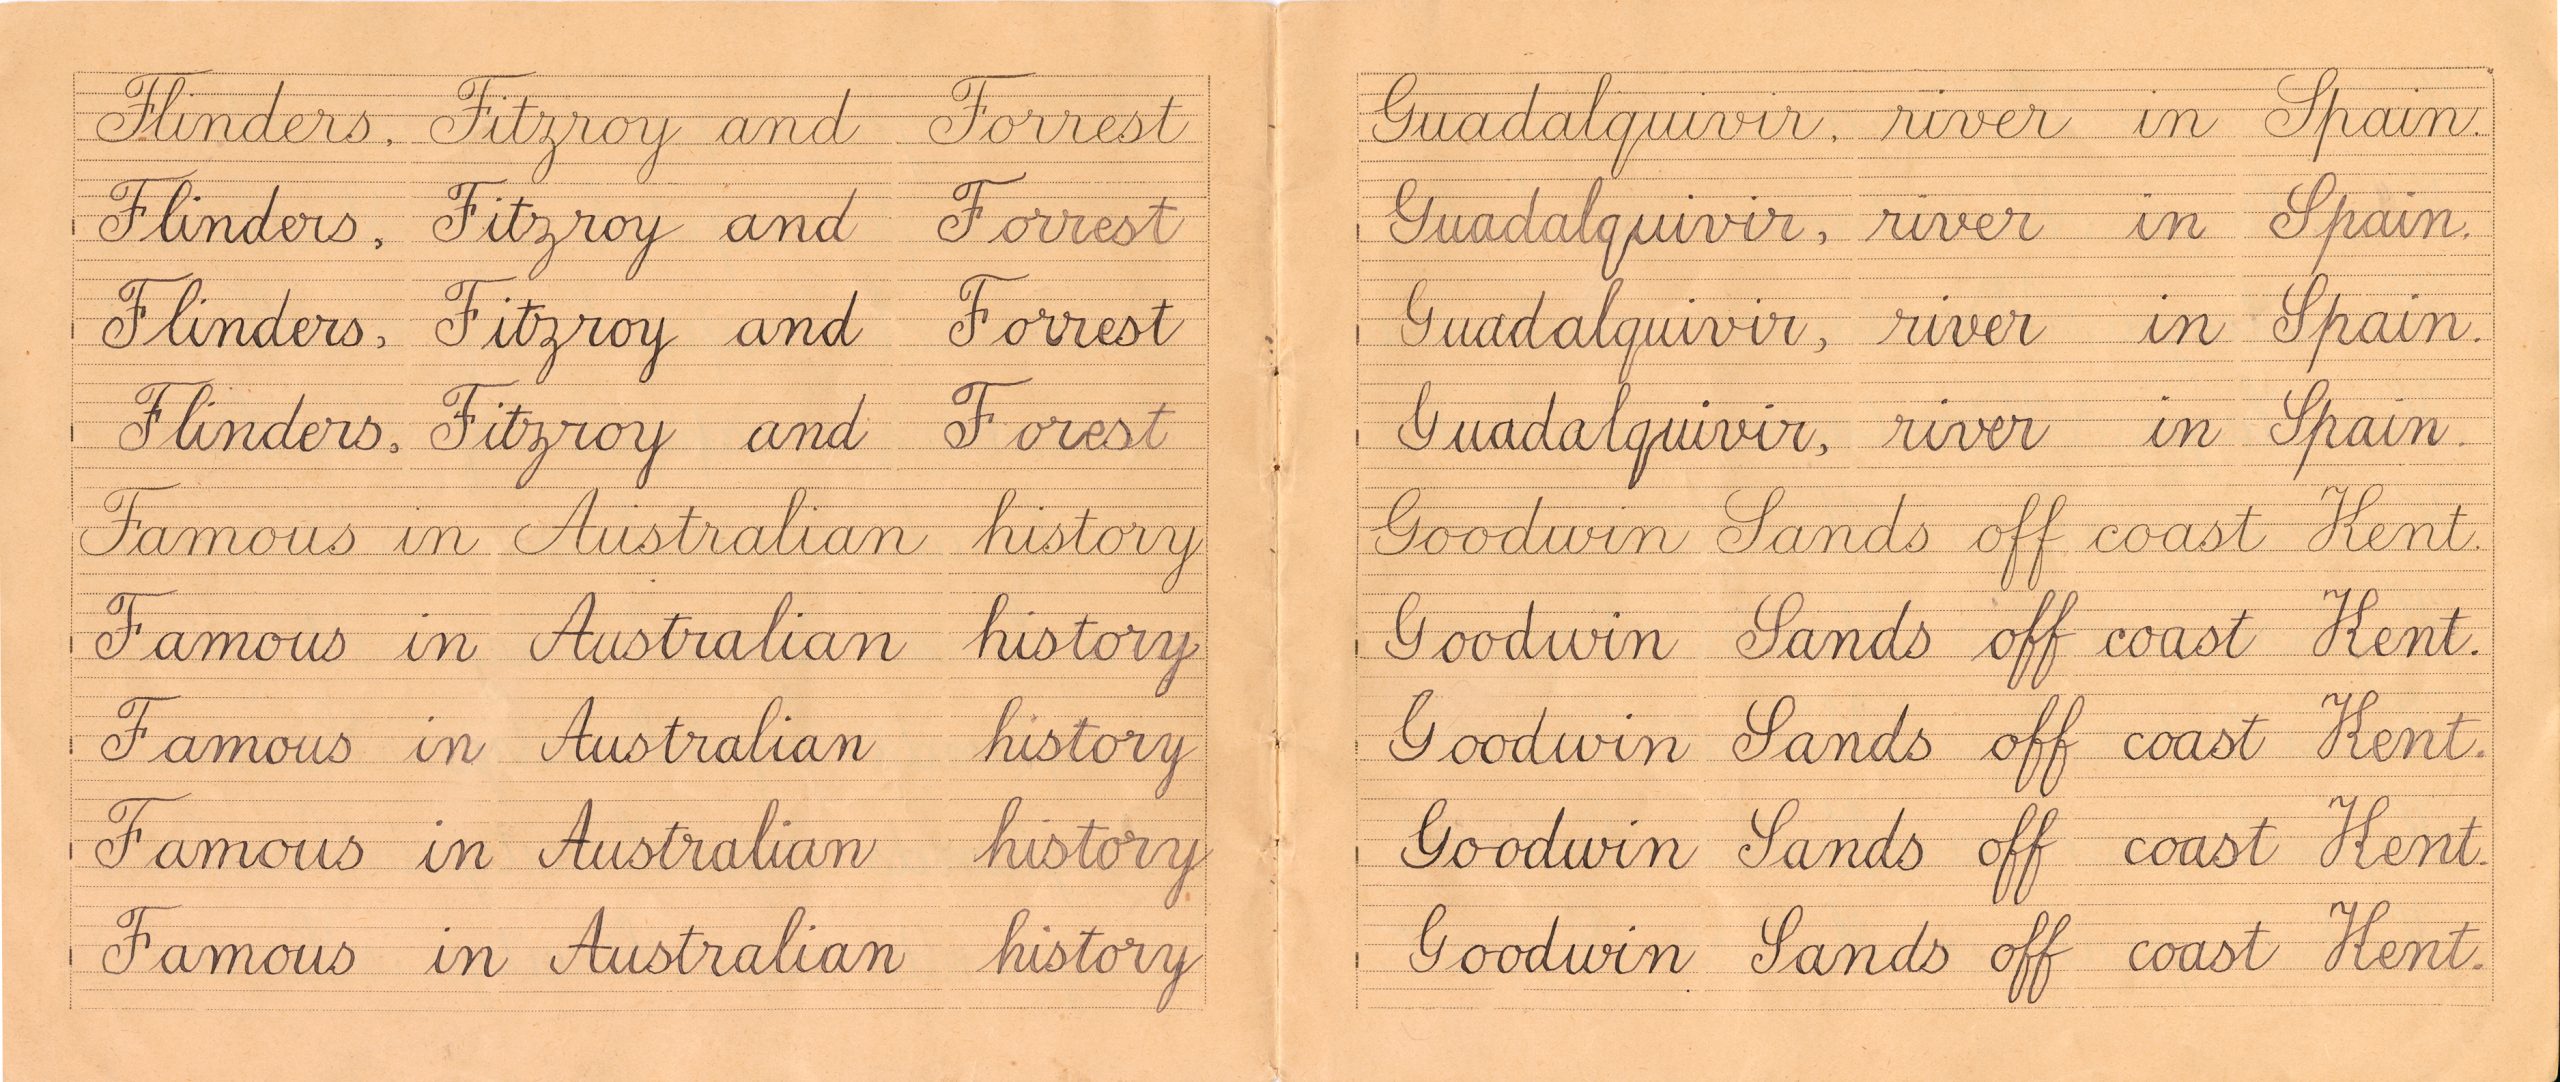 Flinders, Fitzroy and Forrest
Flinders, Fitzroy and Forrest
Flinders, Fitzroy and Forrest
Flinders, Fitzroy and Forest
Famous in Australian history
Famous in Australian history
Famous in Australian history
Famous in Australian history
Famous in Australian history
Guadalquivir, river in Spain.
Guadalquivir, river in Spain.
Guadalquivir, river in Spain.
Guadalquivir, river in Spain.
Goodwin Sands off coast Kent.
Goodwin Sands off coast Kent.
Goodwin Sands off coast Kent.
Goodwin Sands off coast Kent.
Goodwin Sands off coast Kent.